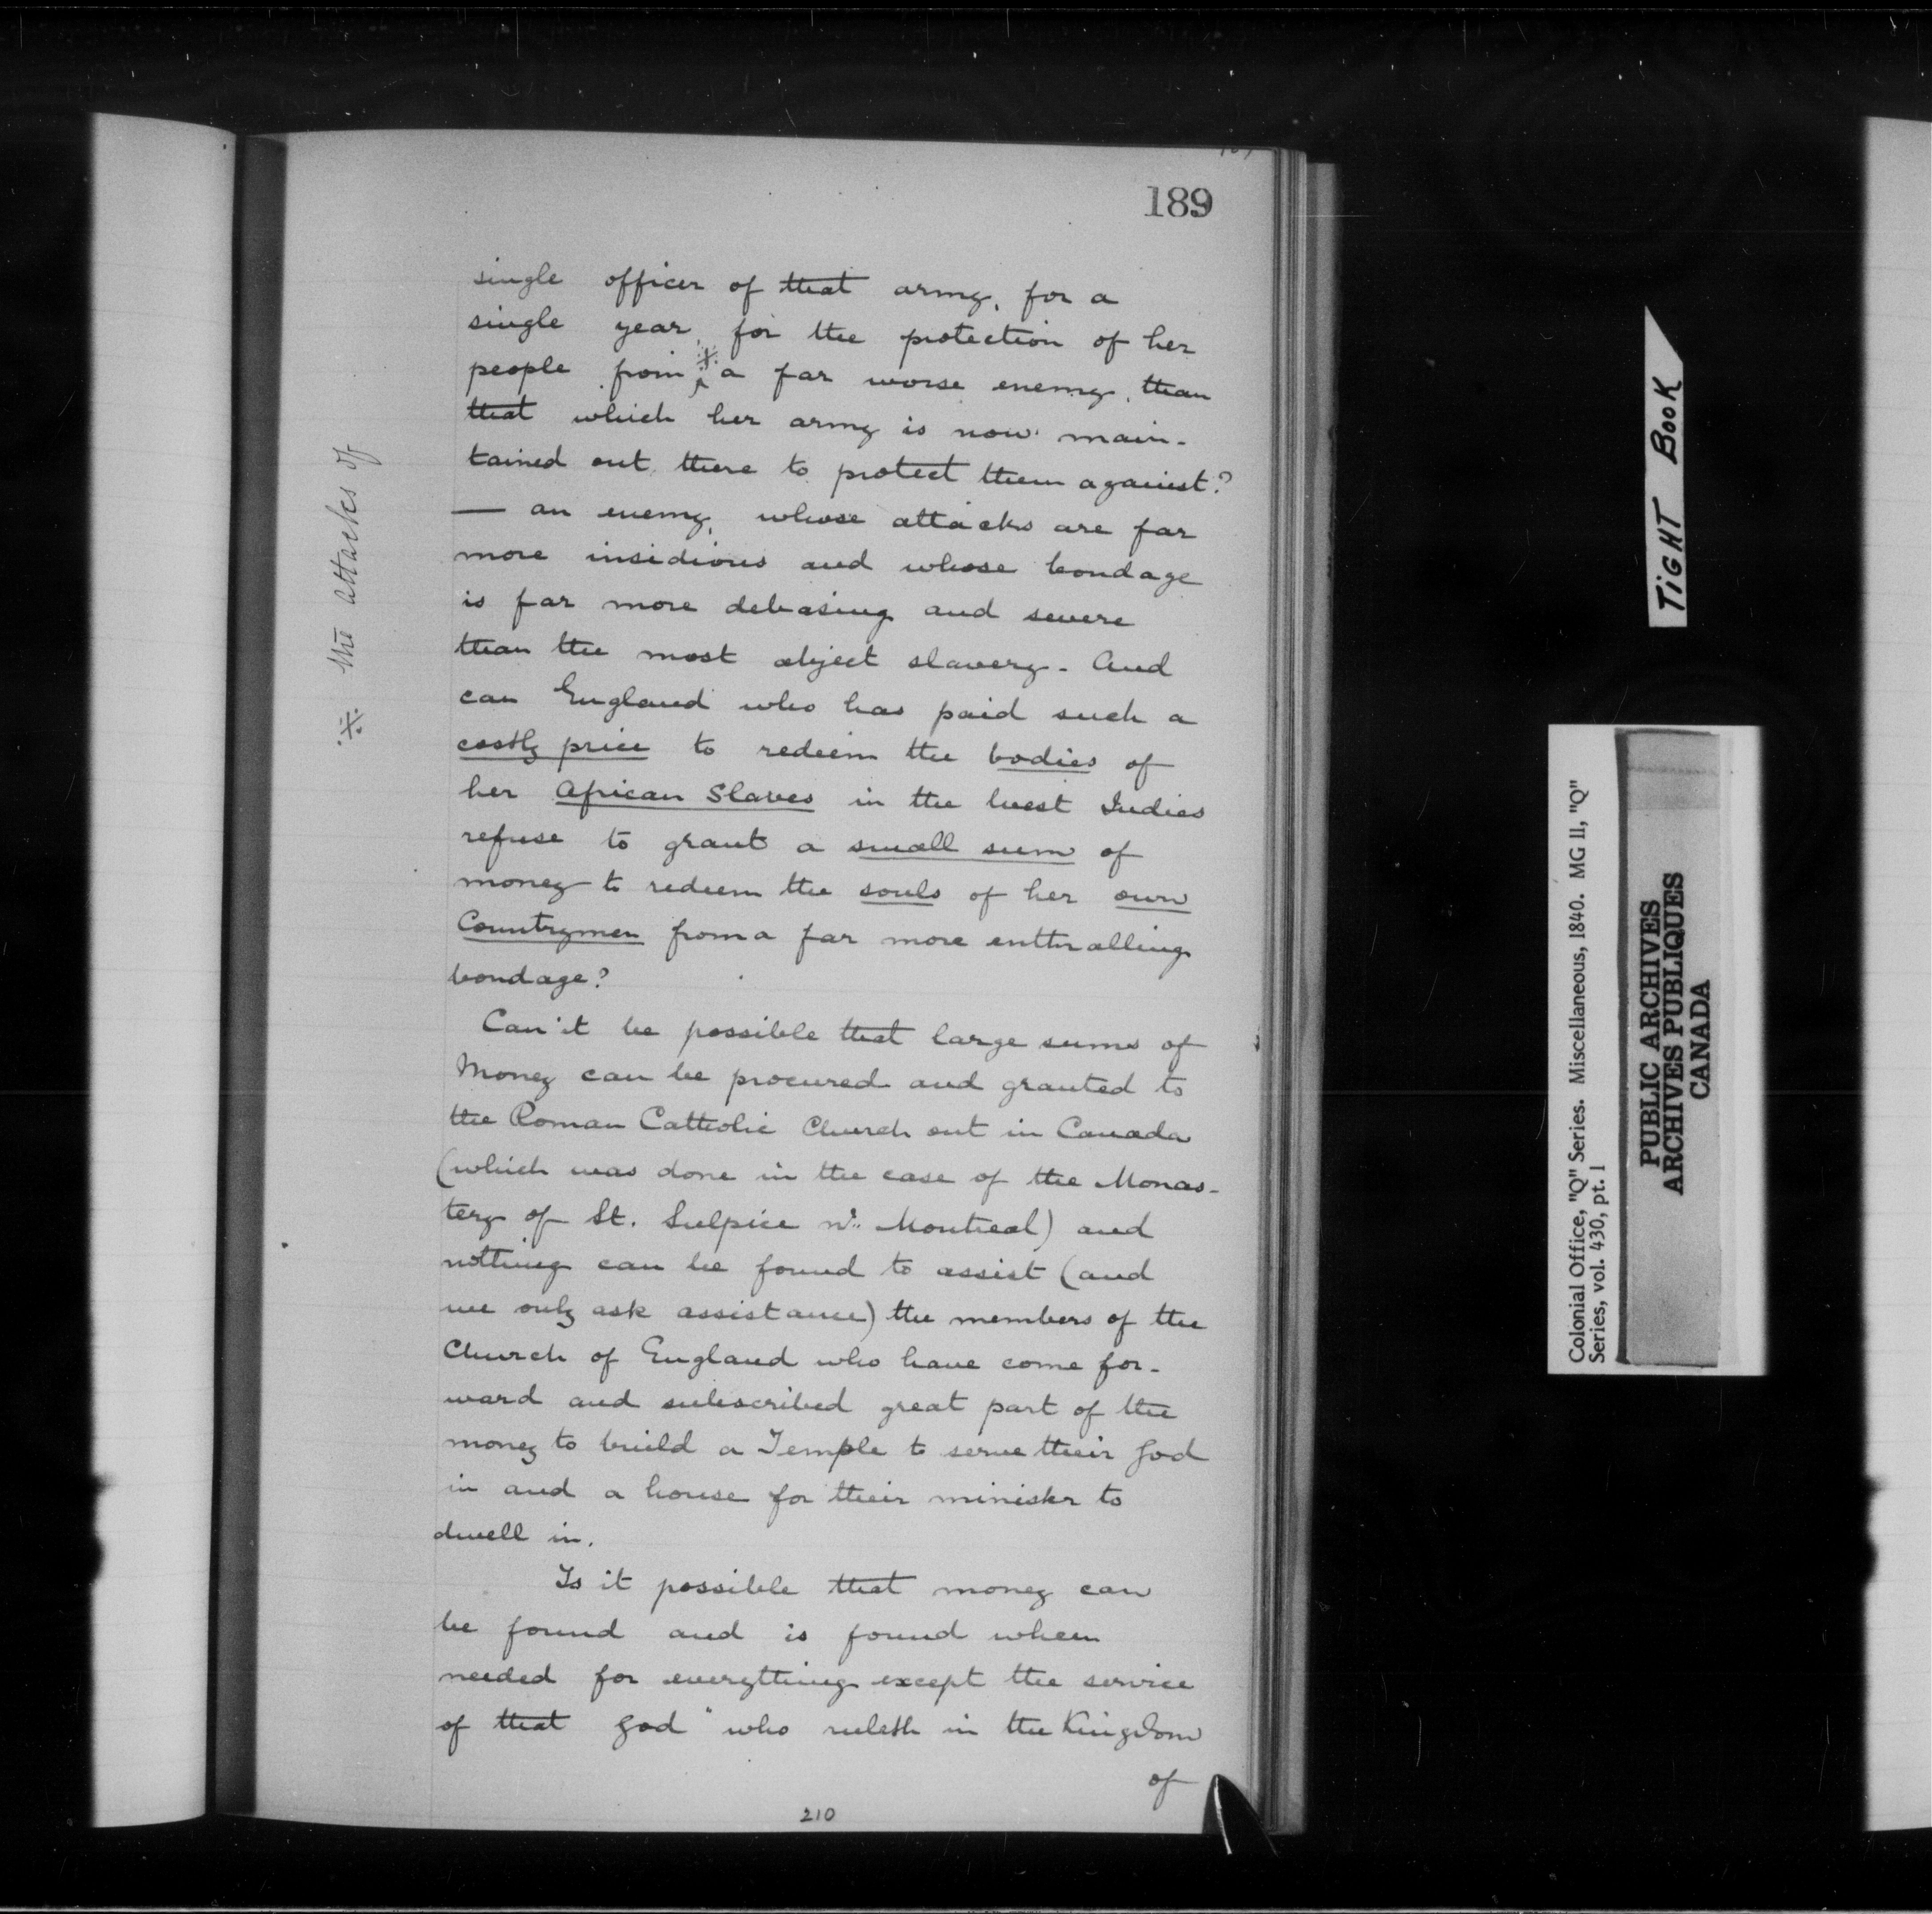 189
single officer of that army, for a
single year, for the protection of her
people from ※ a far worse enemy, than
that which her army is now main-
tained out there to protect them against?
— an enemy, whose attacks are far
more insidious and whose bondage
is far more debasing and severe
than the most abject slavery. And
can England who has paid such a
costly price to redeem the bodies of
her African Slaves in the West Indies
refuse to grant a small sum of
money to redeem the souls of her own
Countrymen from a far more enthralling
bondage?
Can it be possible that large sums of
Money can be procured and granted to
the Roman Catholic Church out in Canada
(which was done in the case of the Monas-
tery of St. Sulpice nr. Montreal) and
nothing can be found to assist (and
we only ask assistance) the members of the
Church of England who have come for-
ward and subscribed great part of the
money to build a Temple to serve their God
in and a house for their minister to
dwell in.
Is it possible that money can
be found and is found when
needed for everything except the service
of that God "who ruleth in the Kingdom
of
210
※ the attacks of
TIGHT BOOK
Colonial Office, "Q" Series. Miscellaneous, 1840. MG 11, "Q"
Series, vol. 430, pt. 1
PUBLIC ARCHIVES
ARCHIVES PUBLIQUES
CANADA